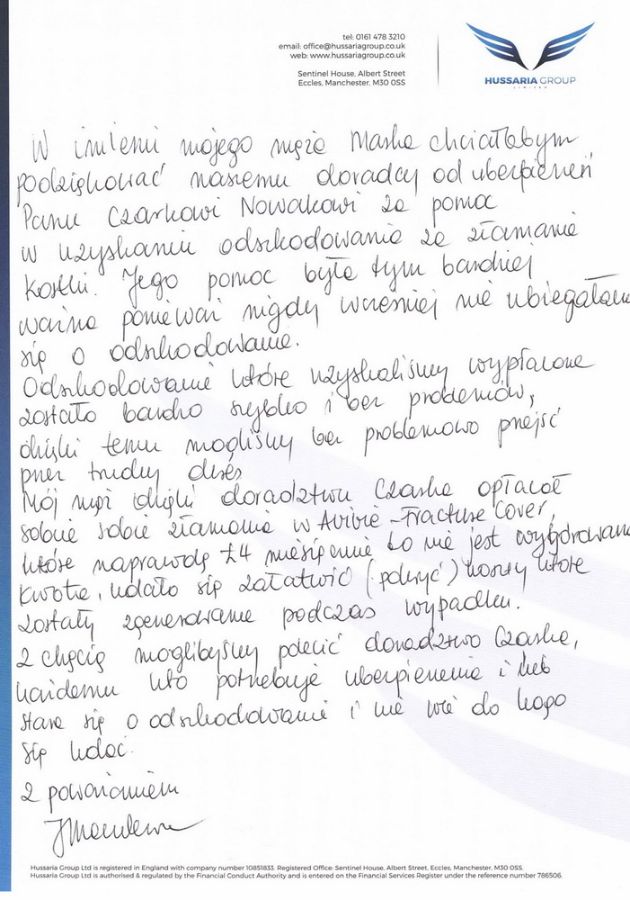 tel: 0161 478 3210
email: office@hussariagroup.co.uk
web: www.hussariagroup.co.uk
Sentinel House, Albert Street
Eccles, Manchester. M30 0SS
HUSSARIA GROUP
LIMITED
W imieniu mojego męża Marka chciałabym
podziękować naszemu doradcy od ubezpieczeń
Panu Czarkowi Nowakowi za pomoc
w uzyskaniu odszkodowania za złamanie
kostki. Jego pomoc była tym bardziej
ważna ponieważ nigdy wcześniej nie ubiegałam
się o odszkodowanie.
Odszkodowanie które uzyskaliśmy wypłacone
zostało bardzo szybko i bez problemów,
dzięki temu mogliśmy bez problemowo przejść
przez trudny okres
Mój mąż dzięki doradztwu Czarka opłacał
sobie sobie złamania w Avivie - Fracture Cover,
które naprawdę £4 miesięcznie to nie jest wygórowana
kwota, udało się załatwić (pokryć) koszty które
zostały zgenerowane podczas wypadku.
Z chęcią moglibyśmy polecić doradztwo Czarka,
każdemu kto potrzebuje ubezpieczenia i lub
stara się o odszkodowanie i nie wie do kogo
się udać.
Z poważaniem
Hussaria Group Ltd is registered in England with company number 10851833. Registered Office: Sentinel House, Albert Street, Eccles, Manchester, M30 0SS.
Hussaria Group Ltd is authorised & regulated by the Financial Conduct Authority and is entered on the Financial Services Register under the reference number 786506.